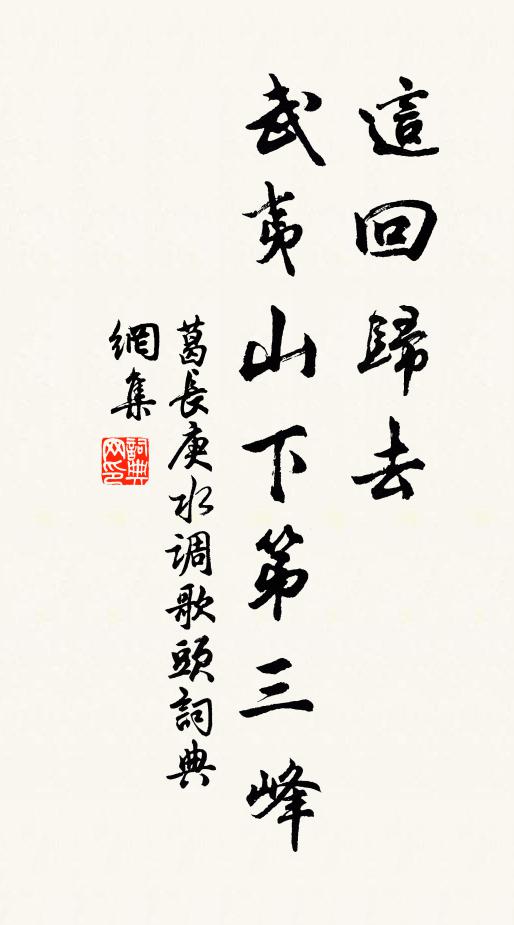 這回歸去
武夷山下第三峰
葛長庚水调歌頭詞典
網集
詞典
网印